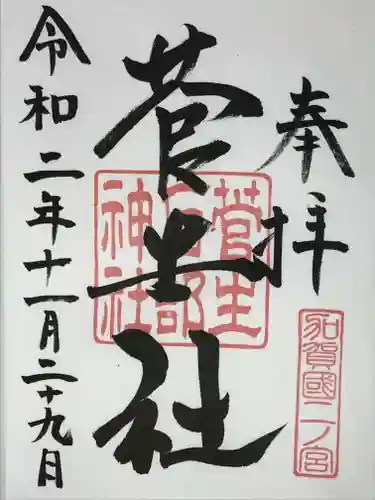 奉拝
加賀國二ノ宮
菅生社
菅生
石部
神社
令和二年十一月二十九日